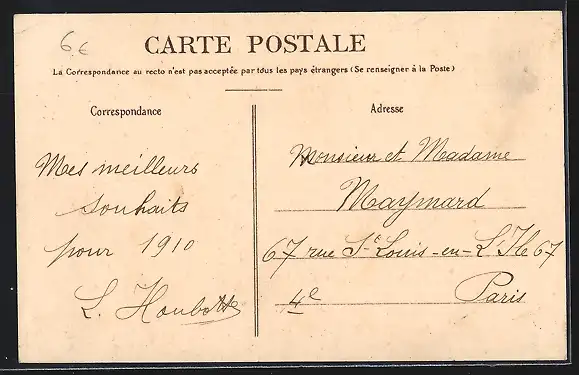 6 €
CARTE POSTALE
La Correspondance au recto n'est pas acceptée par tous les pays étrangers (Se renseigner à la Poste)
Correspondance
Mes meilleurs
souhaits
pour 1910
L. Houbotte
Adresse
Monsieur et Madame
Maymard
67 rue St Louis-en-L'Ile 67
4e Paris